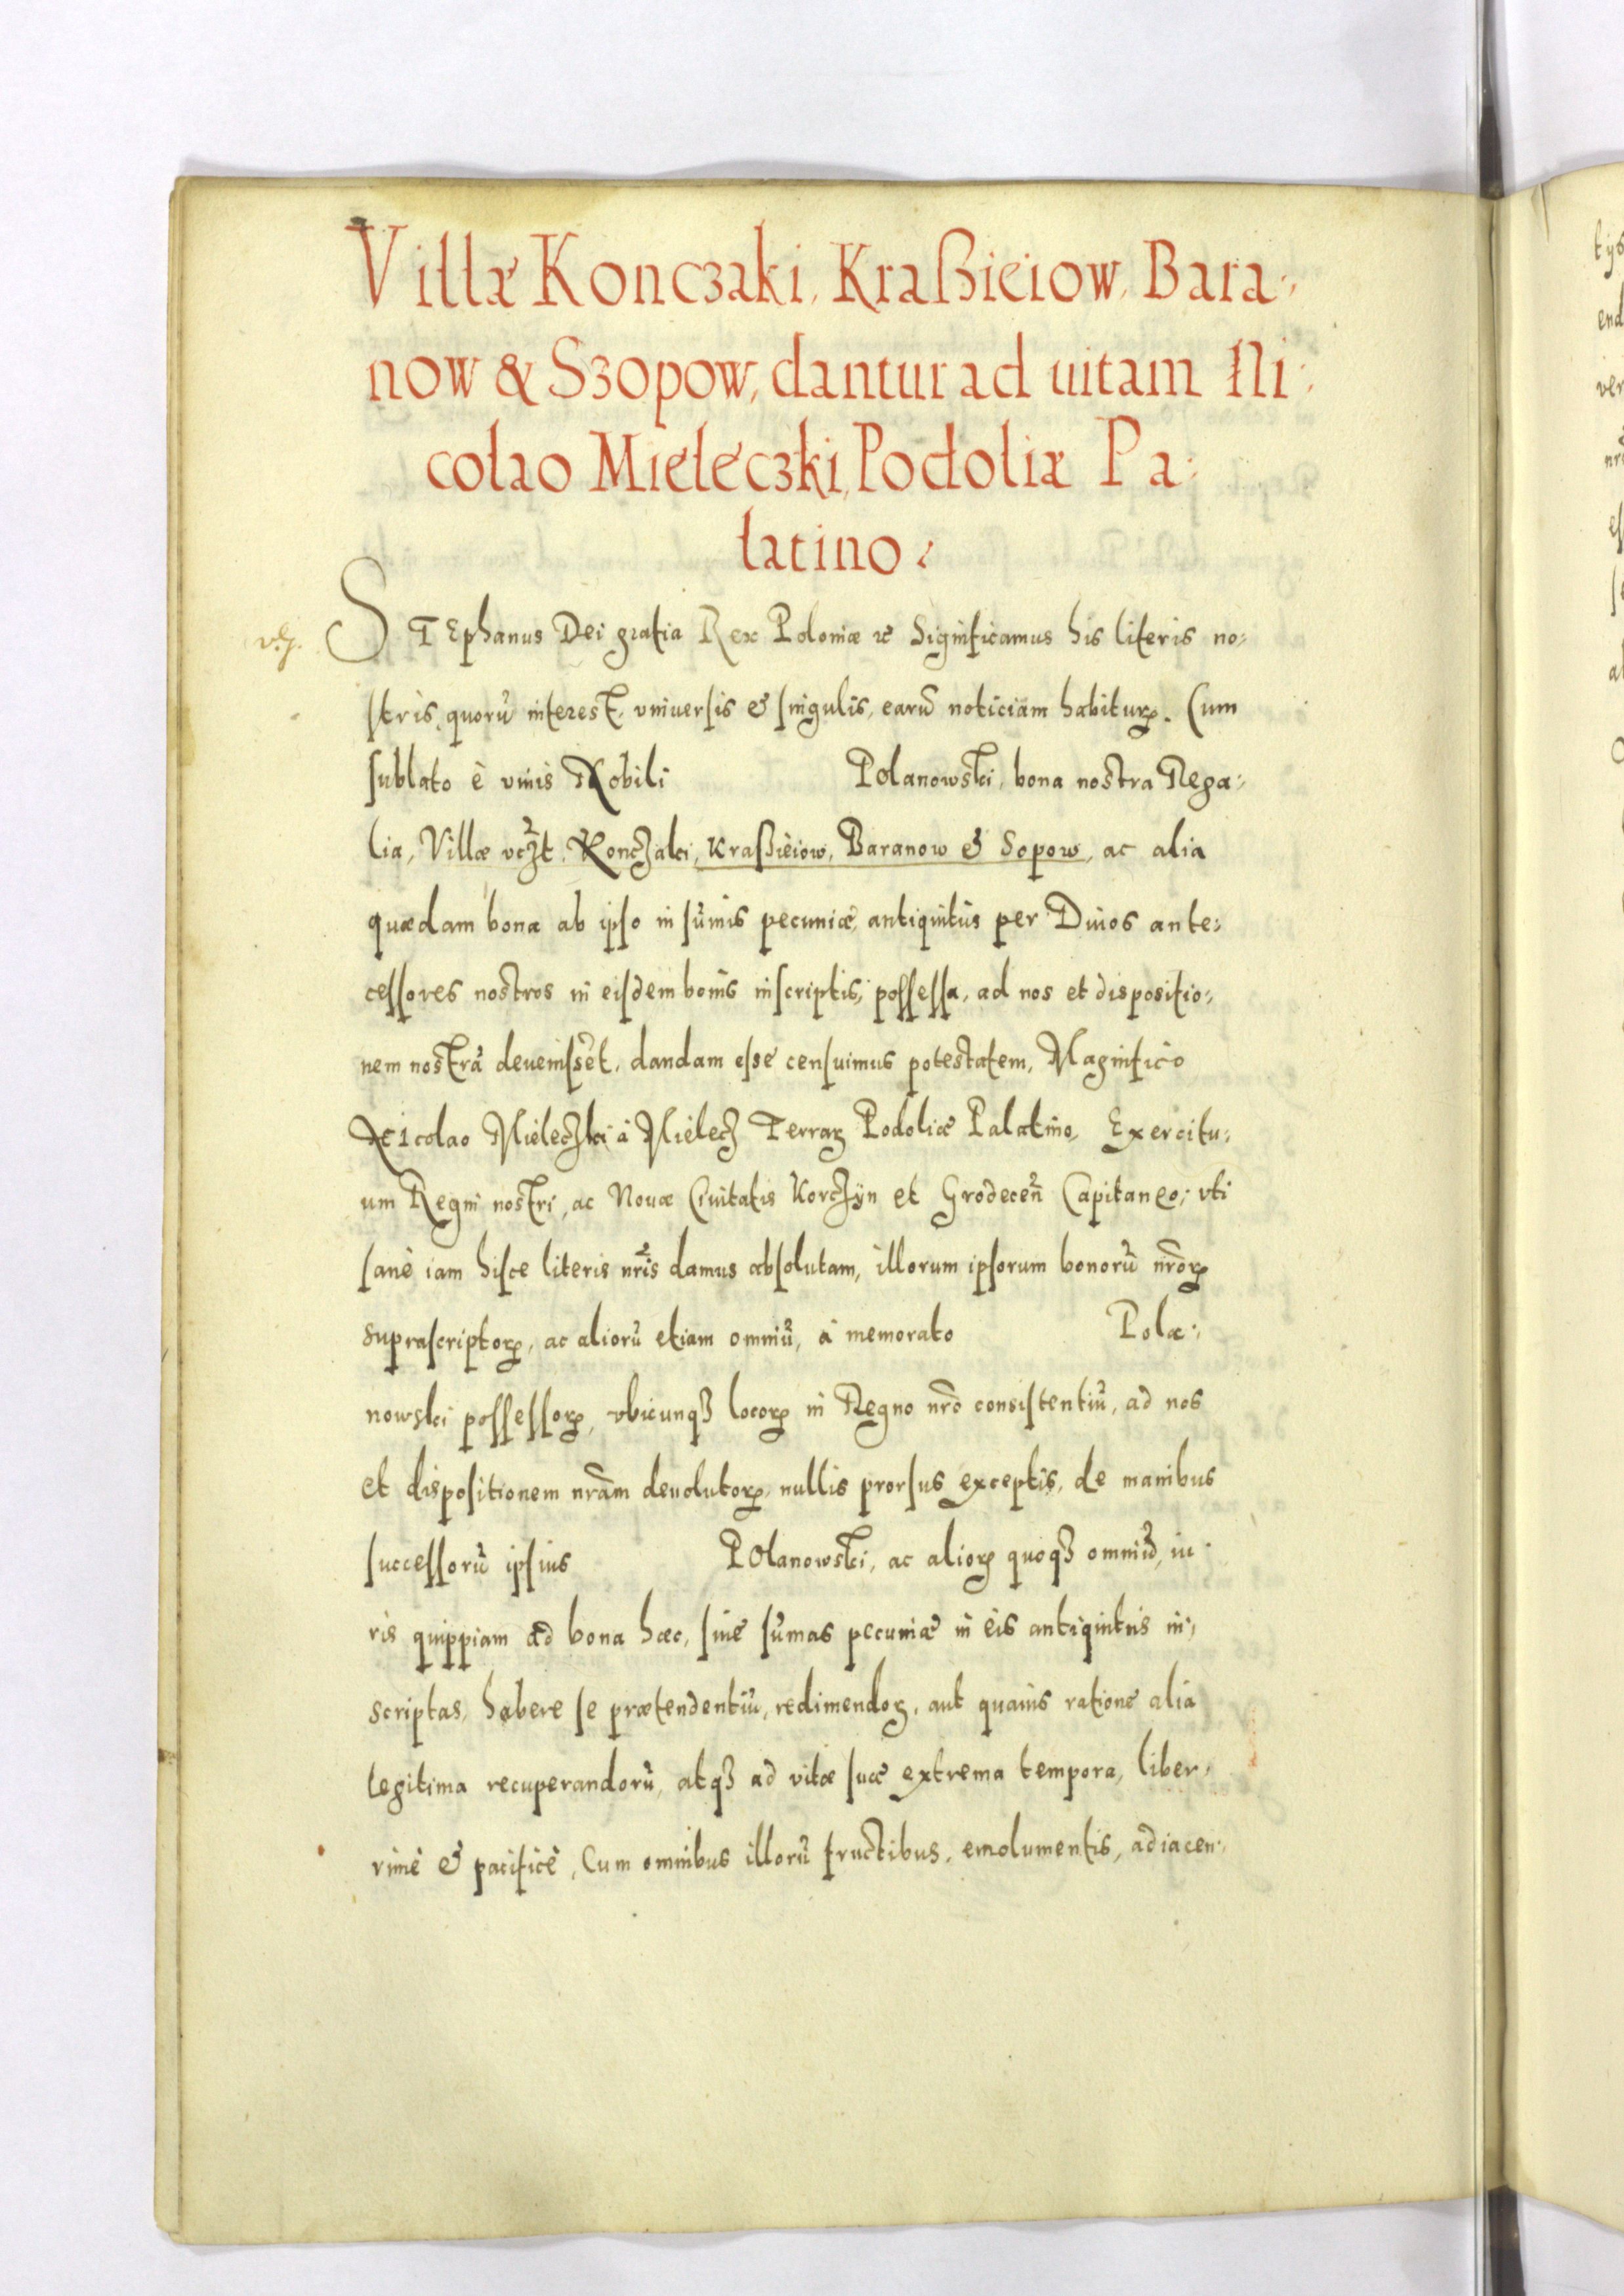 Villæ Konczaki, Kraßieiow, Bara:
now & Szopow, dantur ad uitam Ni:
colao Mieleczki, Podoliæ Pa:
latino:
STEphanus Dei gratia Rex Poloniæ etc Significamus his literis no:
stris, quorū interest, vniuersis & singulis, earū noticiam habiturꝝ. Cum
sublato è viuis Nobili Polanowski, bona nostra Rega:
lia, Villæ vczt. Konczaki, Kraßieiow, Baranow & Sopow, ac alia
quædam bona ab ipso in sumis pecuniæ, antiquitùs per Diuos ante:
cessores nostros in eisdem bonis inscriptis, possessa, ad nos et dispositio:
nem nostrā deuenissēt, dandam esse censuimus potestatem, Magnifico
Nicolao Mieleczki à Mielecz Terraꝝ Podoliæ Palatino, Exercitu:
um Regni nostri, ac Nouæ Ciuitatis Korczyn et Grodeceñ Capitaneo; vti
sanè iam hisce literis nr̃is damus absolutam, illorum ipsorum bonorū nr̃orꝝ
suprascriptorꝝ, ac aliorū etiam omniū, à memorato Pola:
nowski possessorꝝ, vbicunqꝫ locorꝝ in Regno nr̃o consistentiū, ad nos
et dispositionem nr̃am deuolutorꝝ, nullis prorsus exceptis, de manibus
successorū ipsius Polanowski, ac aliorꝝ quoqꝫ omniū, iu:
ris quippiam ad bona hæc, siue sūmas pecuniæ in eis antiquitus in:
scriptas, habere se prætendentiū, redimendoꝝ, aut quauis ratione alia
legitima recuperandorū, atqꝫ ad vitæ suæ extrema tempora, liber:
rimè & pacificè, Cum omnibus illorū fructibus, emolumentis, adiacen: